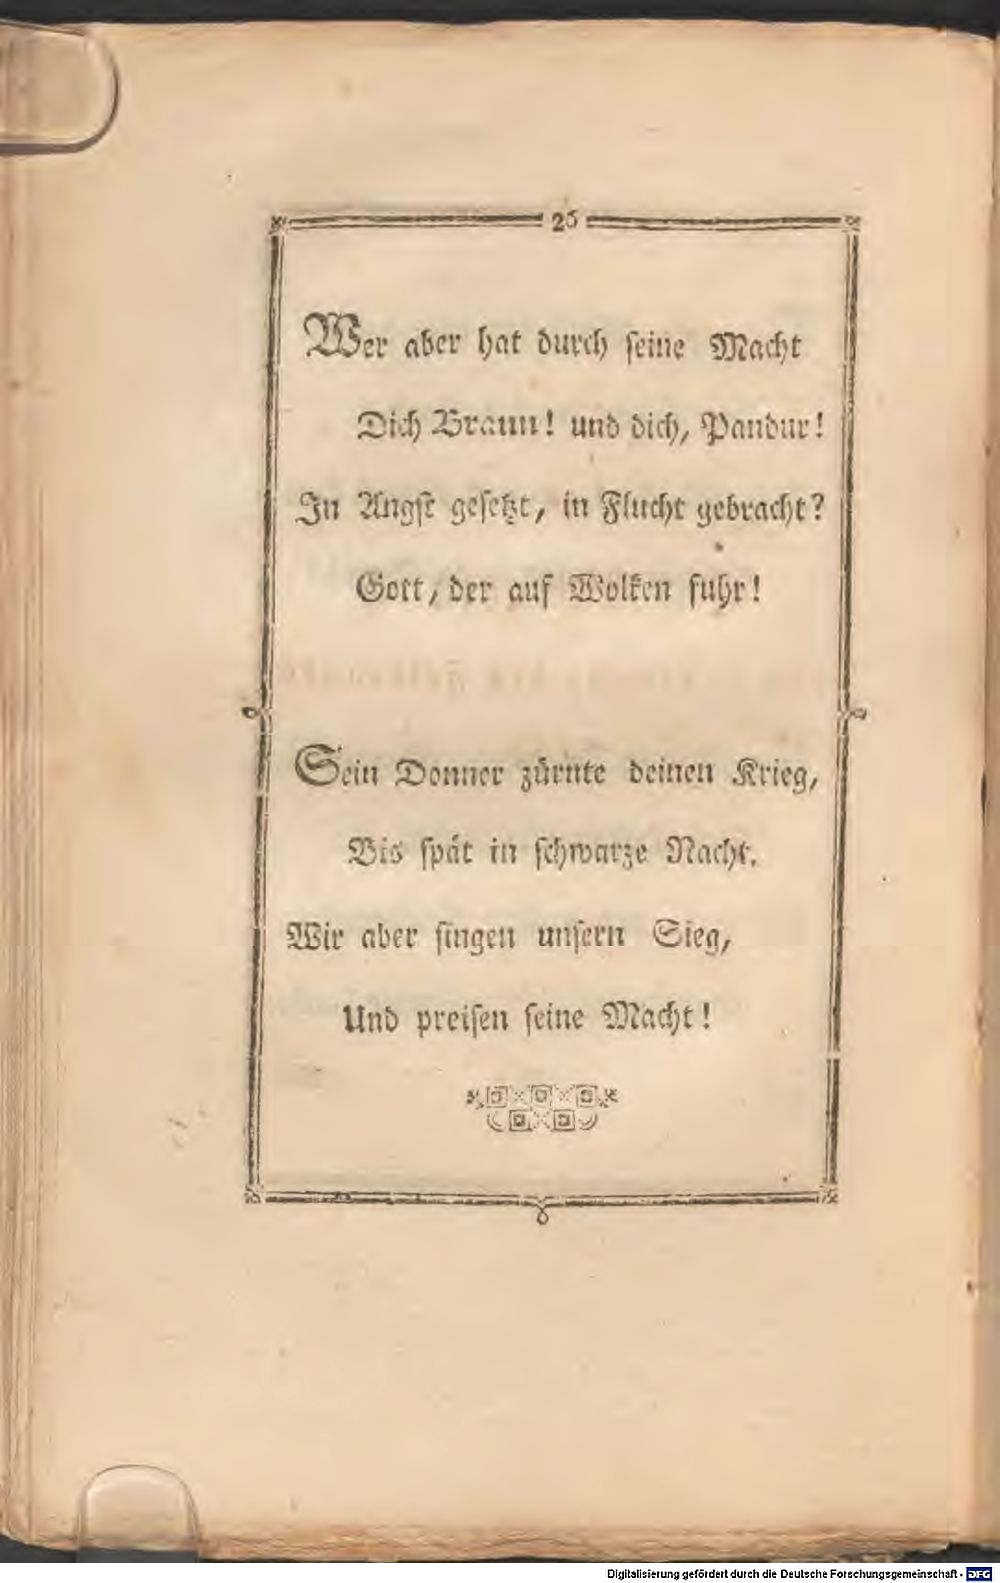 26
Wer aber hat durch ſeine Macht
Dich Braun! und dich, Pandur!
In Angſt geſetzt, in Flucht gebracht?
Gott, der auf Wolken fuhr!
Sein Donner zürnte deinen Krieg,
Bis ſpät in ſchwarze Nacht.
Wir aber ſingen unſern Sieg,
Und preiſen ſeine Macht!
Digitalisierung gefördert durch die Deutsche Forschungsgemeinschaft - DFG